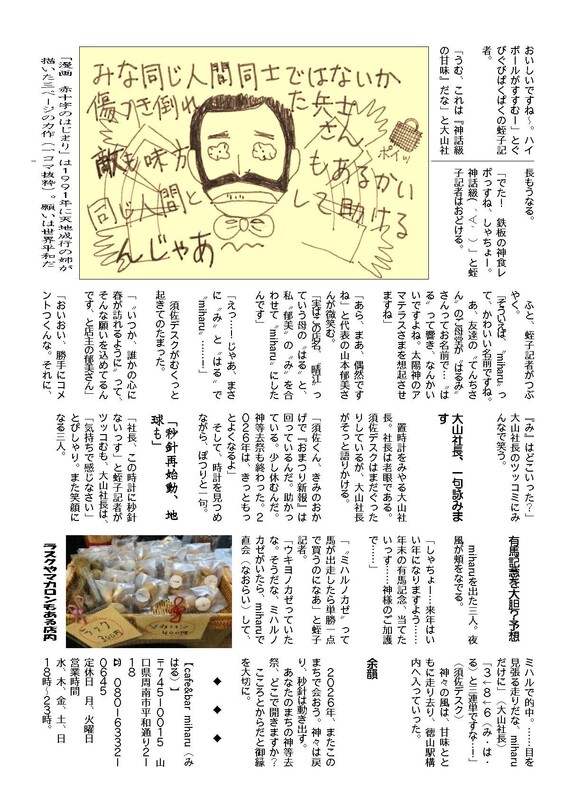 おいしいですね～。ハイ
ボールがすすむー」とぐ
びぐびぱくぱくの蛭子記
者。
「うむ、これは『神話級
の甘味』だな」と大山社
長もうなる。
「でた! 鉄板の神食レ
ポっすね、しゃちょー。
神話級」と蛭
子記者はおどける。
みな同じ人間同士ではないか
傷つき倒れた兵士さん
敵も味方もあるかい
同じ人間として助ける
んじゃあ
ポイッ
『漫画 赤十字のはじまり』は1991年に天地成行の姉が
描いた三ページの力作（一コマ抜粋）。願いは世界平和だ
ふと、蛭子記者がつぶ
やく。
「そういえば、〝miharu〟っ
て、かわいい名前ですね。
あ、友達の〝てんちさ
ん〟のご母堂が〝はるみ〟
さんってお名前で…〝は
る〟って響き、なんかい
いですよね。太陽神のア
マテラスさまを想起させ
ますね」
「あら、まあ、偶然です
ね」と代表の山本郁美さ
んが微笑む。
「実はこの店名、〝晴江〟っ
ていう母の〝はる〟と、
私〝郁美〟の〝み〟を合
わせて〝miharu〟にした
んです」
「えっ……！じゃあ、まさ
に〝み〟と〝はる〟で
〝miharu〟……！」
須佐デスクがむくっと
起きてのたまった。
「〝いつか、誰かの心に
春が訪れるように〟って、
そんな願いを込めてるん
です、と店主の郁美さん」
「おいおい、勝手にコメ
ントつくんな。それに、
『み』はどこいった？」
大山社長のツッコミにみ
んなで笑う。
大山社長、一句詠みま
す
置時計をみやる大山社
長。社長は老眼である。
須佐デスクはまだぐった
りしているが、大山社長
がそっと語りかける。
「須佐くん、きみのおか
げで『おまつり新報』は
回っているんだ。助かっ
ている。少し休むんだ。
神等去祭も終わった。2
026年は、きっともっ
とよくなるよ」
そして、時計を見つめ
ながら、ぽつりと一句。
「秒針再始動、地
球も」
「社長、この時計に秒針
ないっす」と蛭子記者が
ツッコむも、大山社長は、
「気持ちで感じなさい」
とぴしゃり。また笑顔に
なる三人。
有馬記念を大胆り予想
miharuを出た三人。夜
風が頬をなでる。
「しゃちょー…来年はい
い年になりますよう……
年末の有馬記念、当てた
いっす……神様のご加護
で……」
「〝ミハルノカゼ〟って
馬が出走したら単勝一点
で買うのになあ」と蛭子
記者。
「ウキヨノカゼっていた
な。そうだな、ミハルノ
カゼがいたら、miharuで
直会（なおらい）して、
ラスク
300円
ラスクやマカロンもある店内
ミハルで的中。……目を
見張る走りだな、miharu
だけに」（大山社長）
「３→８→６（み・は・
る）と三連単ですな…！」
（須佐デスク）
神々の風は、甘味とと
もに走り去り、徳山駅構
内へ入っていった。
余韻
2026年、またこの
まちで会おう。神々は戻
り、秒針は動き出す。
あなたのまちの神等去
祭、どこで開きますか？
こころとからだと御縁
を大切に。
◆ ◆ ◆
【cafe&bar miharu（み
はる）】
〒745-0015 山
口県周南市平和通り2-
18
☎ 080-6332-
0645
定休日 月、火曜日
営業時間
水、木、金、土、日
18時～23時。